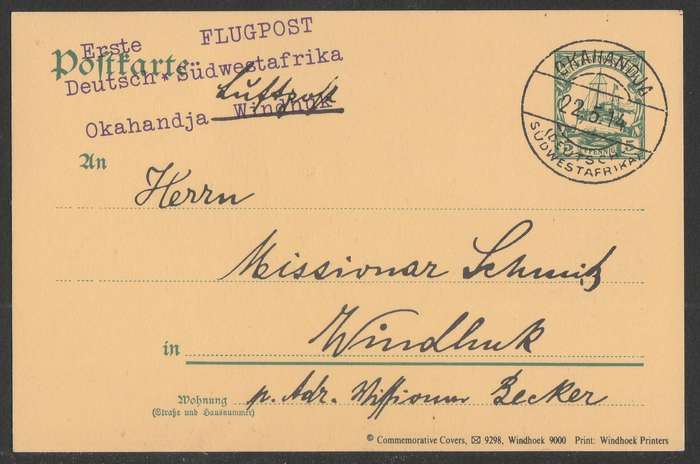 Erste FLUGPOST
Postkarte
Deutsch Südwestafrika
Luftpost
Okahandja Windhuk
OKAHANDJA
22.5.14
(DEUTSCH-
SÜDWESTAFRIKA)
An
Herrn
Missionar Schmitz
in Windhuk
Wohnung p. Adr. Missionar Becker
(Straße und Hausnummer)
© Commemorative Covers, ✉ 9298, Windhoek 9000 Print: Windhoek Printers